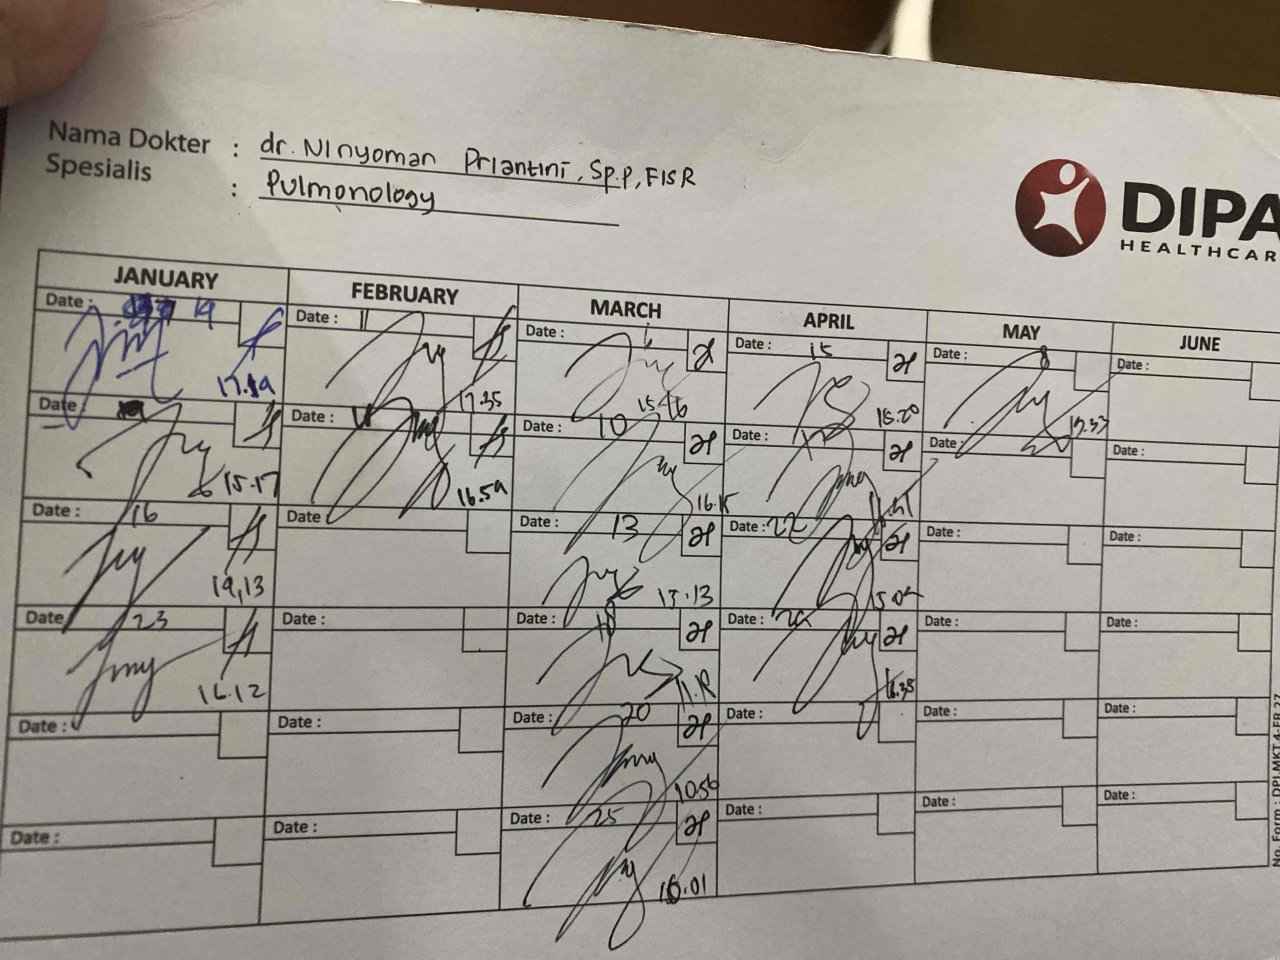 Nama Dokter : dr. Ni nyoman Priantini, Sp.P, FISR
Spesialis : Pulmonology
DIPA
HEALTHCAR
JANUARY FEBRUARY MARCH APRIL MAY JUNE
Date : 19 Date : 11 Date : 6 Date : 15 Date : 8 Date :
17.35 15.46 15.20 13.33
Date : Date : Date : 10 Date : Date : Date :
15.17 16.59 16.15
Date : 16 Date : Date : 13 Date : 22 Date : Date :
19,13 13.13
Date 23 Date : Date : 18 Date : Date : Date :
16.12 16.38
Date : Date : Date : 20 Date : Date : Date :
10.56
Date : Date : Date : 25 Date : Date : Date :
16.01
No. Form : DPI.MKT.4-FR.27